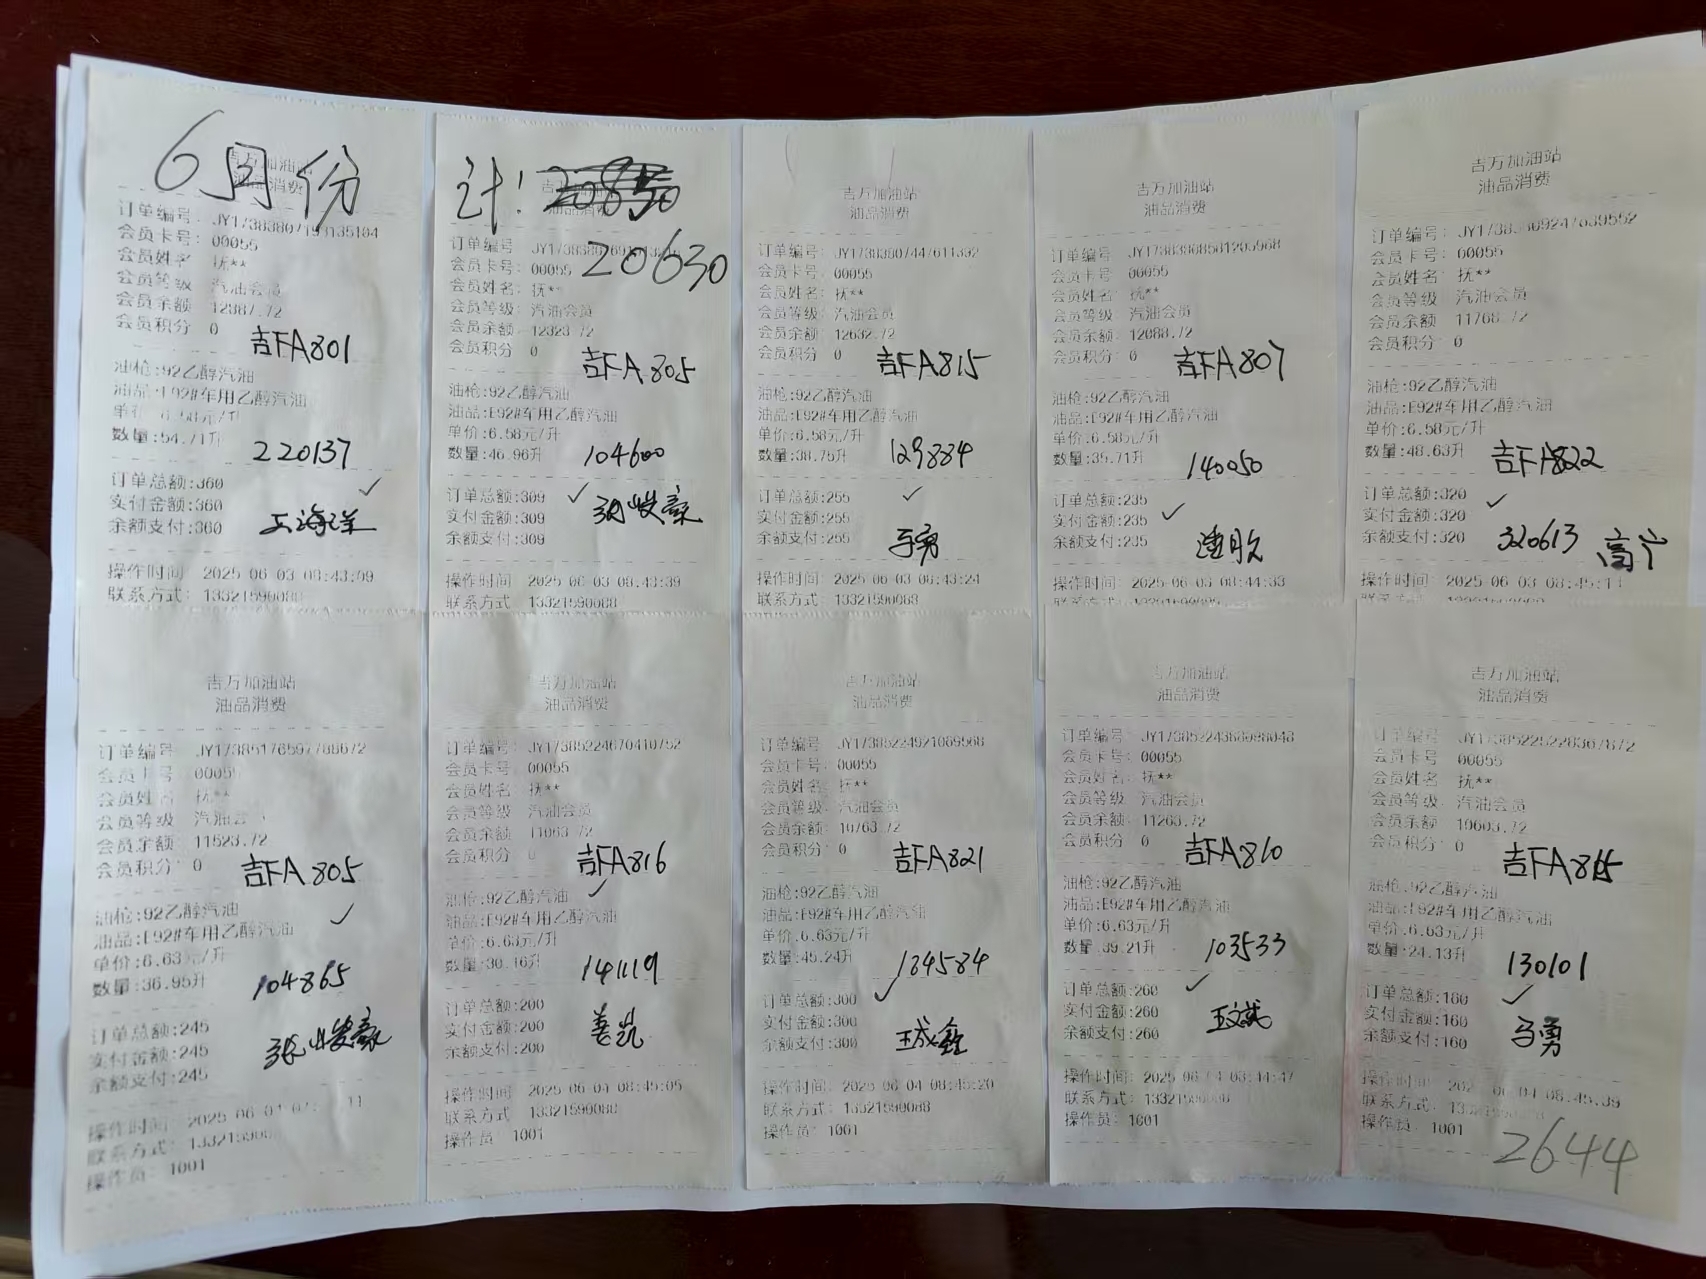 6月份
吉万加油站
油品消费
订单编号:
会员卡号: 00055
会员姓名: 抚**
会员等级 汽油会员
会员余额: 12387.72
会员积分 0
吉FA801
油枪:92乙醇汽油
油品:E92#车用乙醇汽油
单价:6.58元/升
数量:54.71升
220137
订单总额:360
实付金额:360
余额支付:360
操作时间 2025-06-03 08:43:09
联系方式: 13321590088
计:20850
20630
油品消费
订单编号
会员卡号: 00055
会员姓名: 抚**
会员等级: 汽油会员
会员余额: 12323.72
会员积分 0
吉FA805
油枪:92乙醇汽油
油品:E92#车用乙醇汽油
单价:6.58元/升
数量:46.96升
104600
订单总额:309
实付金额:309
余额支付:309
操作时间 2025-06-03 08:43:39
联系方式 13321590088
吉万加油站
油品消费
订单编号: JY17383807447611392
会员卡号: 00055
会员姓名: 抚**
会员等级: 汽油会员
会员余额: 12632.72
会员积分: 0
吉FA815
油枪:92乙醇汽油
油品:E92#车用乙醇汽油
单价:6.58元/升
数量:38.75升
129884
订单总额:255
实付金额:255
余额支付:255
于勇
操作时间: 2025-06-03 08:43:24
联系方式: 13321590088
吉万加油站
油品消费
订单编号:
会员卡号: 00055
会员姓名: 抚**
会员等级: 汽油会员
会员余额: 12088.72
会员积分: 0
吉FA807
油枪:92乙醇汽油
油品:E92#车用乙醇汽油
单价:6.58元/升
数量:35.71升
140050
订单总额:235
实付金额:235
余额支付:235
操作时间: 2025-06-03 08:44:33
吉万加油站
油品消费
订单编号:
会员卡号: 00055
会员姓名: 抚**
会员等级: 汽油会员
会员余额 11768.72
会员积分: 0
油枪:92乙醇汽油
油品:E92#车用乙醇汽油
单价:6.58元/升
数量:48.63升
吉FA822
订单总额:320
实付金额:320
余额支付:320
320613
高广
操作时间: 2025-06-03
吉万加油站
油品消费
订单编号
会员卡号 00055
会员姓名 抚**
会员等级
会员余额: 11523.72
会员积分: 0
吉FA805
油枪:92乙醇汽油
油品:E92#车用乙醇汽油
单价:6.63元/升
数量:36.95升
104865
订单总额:245
实付金额:245
余额支付:245
操作时间:
联系方式:
操作员: 1001
吉万加油站
油品消费
订单编号: JY17385224670410752
会员卡号: 00055
会员姓名: 抚**
会员等级 汽油会员
会员余额 11063.72
会员积分
吉FA816
油枪:92乙醇汽油
油品:E92#车用乙醇汽油
单价:6.63元/升
数量:30.16升
141119
订单总额:200
实付金额:200
余额支付:200
操作时间: 2025-06-04 08:45:05
联系方式 13321590088
操作员 1001
吉万加油站
油品消费
订单编号 JY17385224921089568
会员卡号: 00055
会员姓名: 抚**
会员等级: 汽油会员
会员余额: 10763.72
会员积分: 0
吉FA821
油枪:92乙醇汽油
油品:E92#车用乙醇汽油
单价:6.63元/升
数量:45.24升
134584
订单总额:300
实付金额:300
余额支付:300
王成鑫
操作时间: 2025-06-04 08:45:20
联系方式: 13321590088
操作员: 1001
吉万加油站
油品消费
订单编号: JY17385224363098048
会员卡号: 00055
会员姓名: 抚**
会员等级 汽油会员
会员余额: 11263.72
会员积分: 0
吉FA810
油枪:92乙醇汽油
油品:E92#车用乙醇汽油
单价:6.63元/升
数量:39.21升
103533
订单总额:260
实付金额:260
余额支付:260
操作时间: 2025-06-04 08:44:47
联系方式:
操作员: 1001
吉万加油站
油品消费
订单编号:
会员卡号: 00055
会员姓名 抚**
会员等级. 汽油会员
会员余额 10603.72
会员积分 0
吉FA815
油枪:92乙醇汽油
油品:E92#车用乙醇汽油
单价:6.63元/升
数量:24.13升
130101
订单总额:160
实付金额:160
余额支付:160
于勇
操作时间:
联系方式:
操作员: 1001
2644